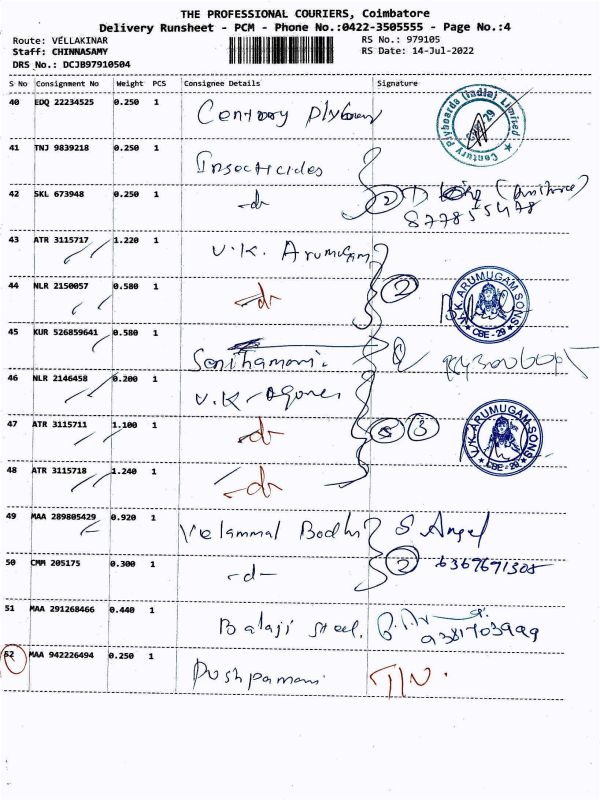 THE PROFESSIONAL COURIERS, Coimbatore
Delivery Runsheet - PCM - Phone No.:0422-3505555 - Page No.:4
Route: VELLAKINAR RS No.: 979105
Staff: CHINNASAMY RS Date: 14-Jul-2022
DRS No.: DCJB97910504
S No Consignment No Weight PCS Consignee Details Signature
40 EDQ 22234525 0.250 1 Century plyboards
Century Plyboards (India) Limited
CBE 29
41 TNJ 9839218 0.250 1 Insecticides
42 SKL 673948 0.250 1 -do- 2
43 ATR 3115717 1.220 1 V.K. Arumugam
44 NLR 2150057 0.580 1 -do- 2
V.K. ARUMUGAM SONS
CBE - 29
45 KUR 526859641 0.580 1
46 NLR 2146458 0.200 1 V.K.
47 ATR 3115711 1.100 1 -do- 3
V.K. ARUMUGAM SONS
CBE - 29
48 ATR 3115718 1.240 1 -do-
49 MAA 289805429 0.920 1 Velammal Bodhi S. Angel
50 CMM 205175 0.300 1 -do- 2 6367671305
51 MAA 291268466 0.440 1 Balaji Steel.
9381703999
52 MAA 942226494 0.250 1 Pushpamani